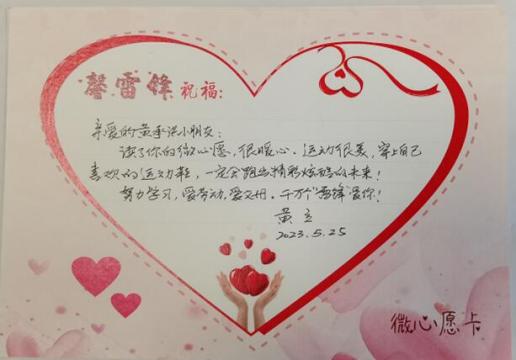 馨雷锋祝福:
亲爱的黄承洪小朋友:
读了你的微心愿,很暖心。运动很美,穿上自己
喜欢的运动鞋,一定会跑出精彩炫酷的未来!
努力学习,爱劳动,爱文明。千万个"雷锋"爱你!
黄立
2023.5.25
微心愿卡